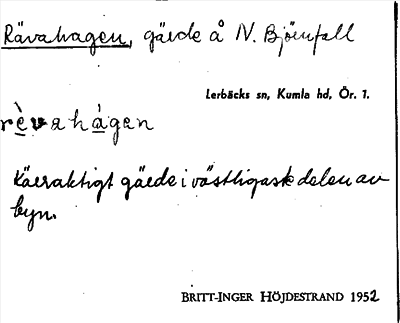 Rävahagen, gärde å N. Björnfall
Lerbäcks sn, Kumla hd, Ör. 1.
rèvahágen
Käeraktigt gärde i västligaste delen av
byn.
BRITT-INGER HÖJDESTRAND 1952